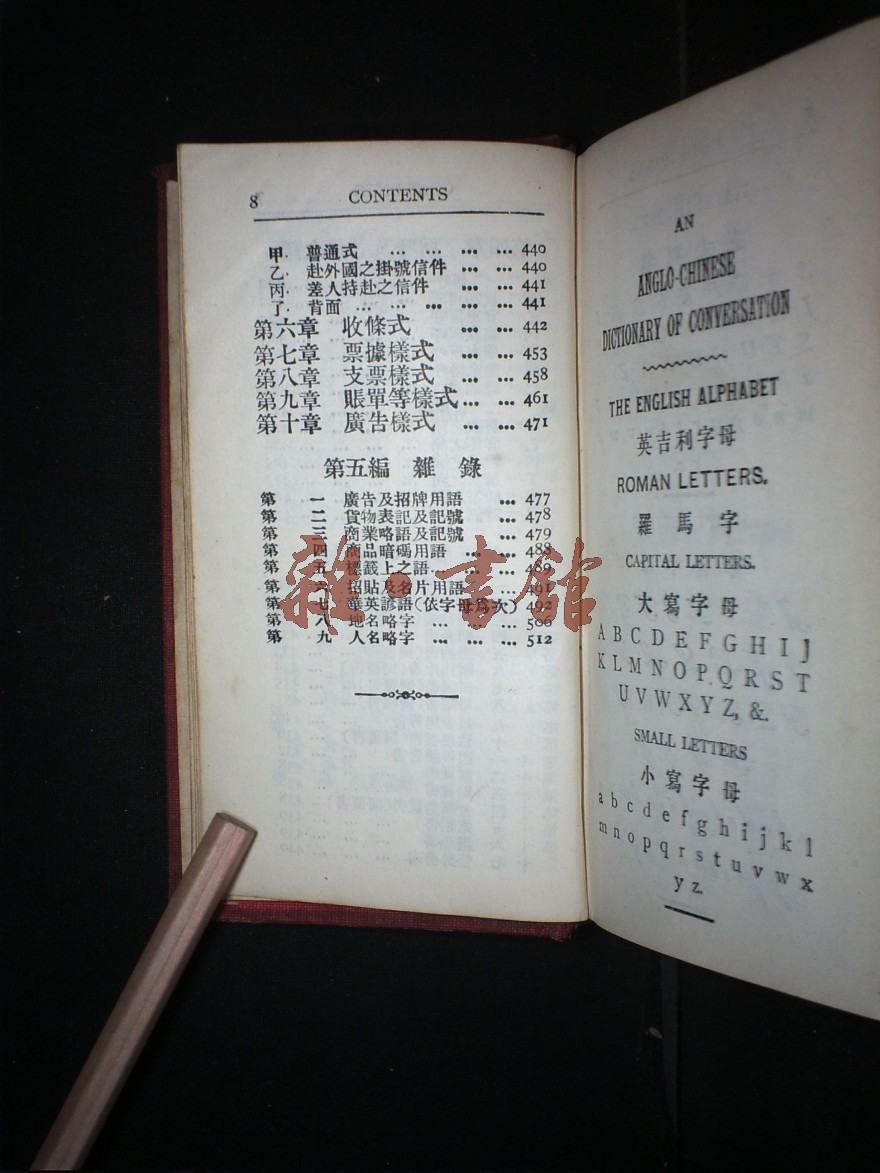 8 CONTENTS
甲. 普通式 ... ... ... ... 440
乙. 赴外國之掛號信件 ... ... 440
丙. 差人持赴之信件 ... ... 441
丁. 背面 ... ... ... ... ... 441
第六章 收條式 ... ... 442
第七章 票據樣式 ... ... 453
第八章 支票樣式 ... ... 458
第九章 賬單等樣式 ... ... 461
第十章 廣告樣式 ... ... 471
第五編 雜錄
第一 廣告及招牌用語 ... 477
第二 貨物表記及記號 ... 478
第三 商業略語及記號 ... 479
第四 商品暗碼用語 ... ... 488
第五 標籤上之語 ... ... 489
第六 招貼及名片用語 ... 491
第七 華英諺語(依字母爲次) 492
第八 地名略字 ... ... ... 506
第九 人名略字 ... ... ... 512
雜·書館
AN
ANGLO-CHINESE
DICTIONARY OF CONVERSATION
THE ENGLISH ALPHABET
英吉利字母
ROMAN LETTERS.
羅馬字
CAPITAL LETTERS.
大寫字母
A B C D E F G H I J
K L M N O P Q R S T
U V W X Y Z, &.
SMALL LETTERS
小寫字母
a b c d e f g h i j k l
m n o p q r s t u v w x
y z.